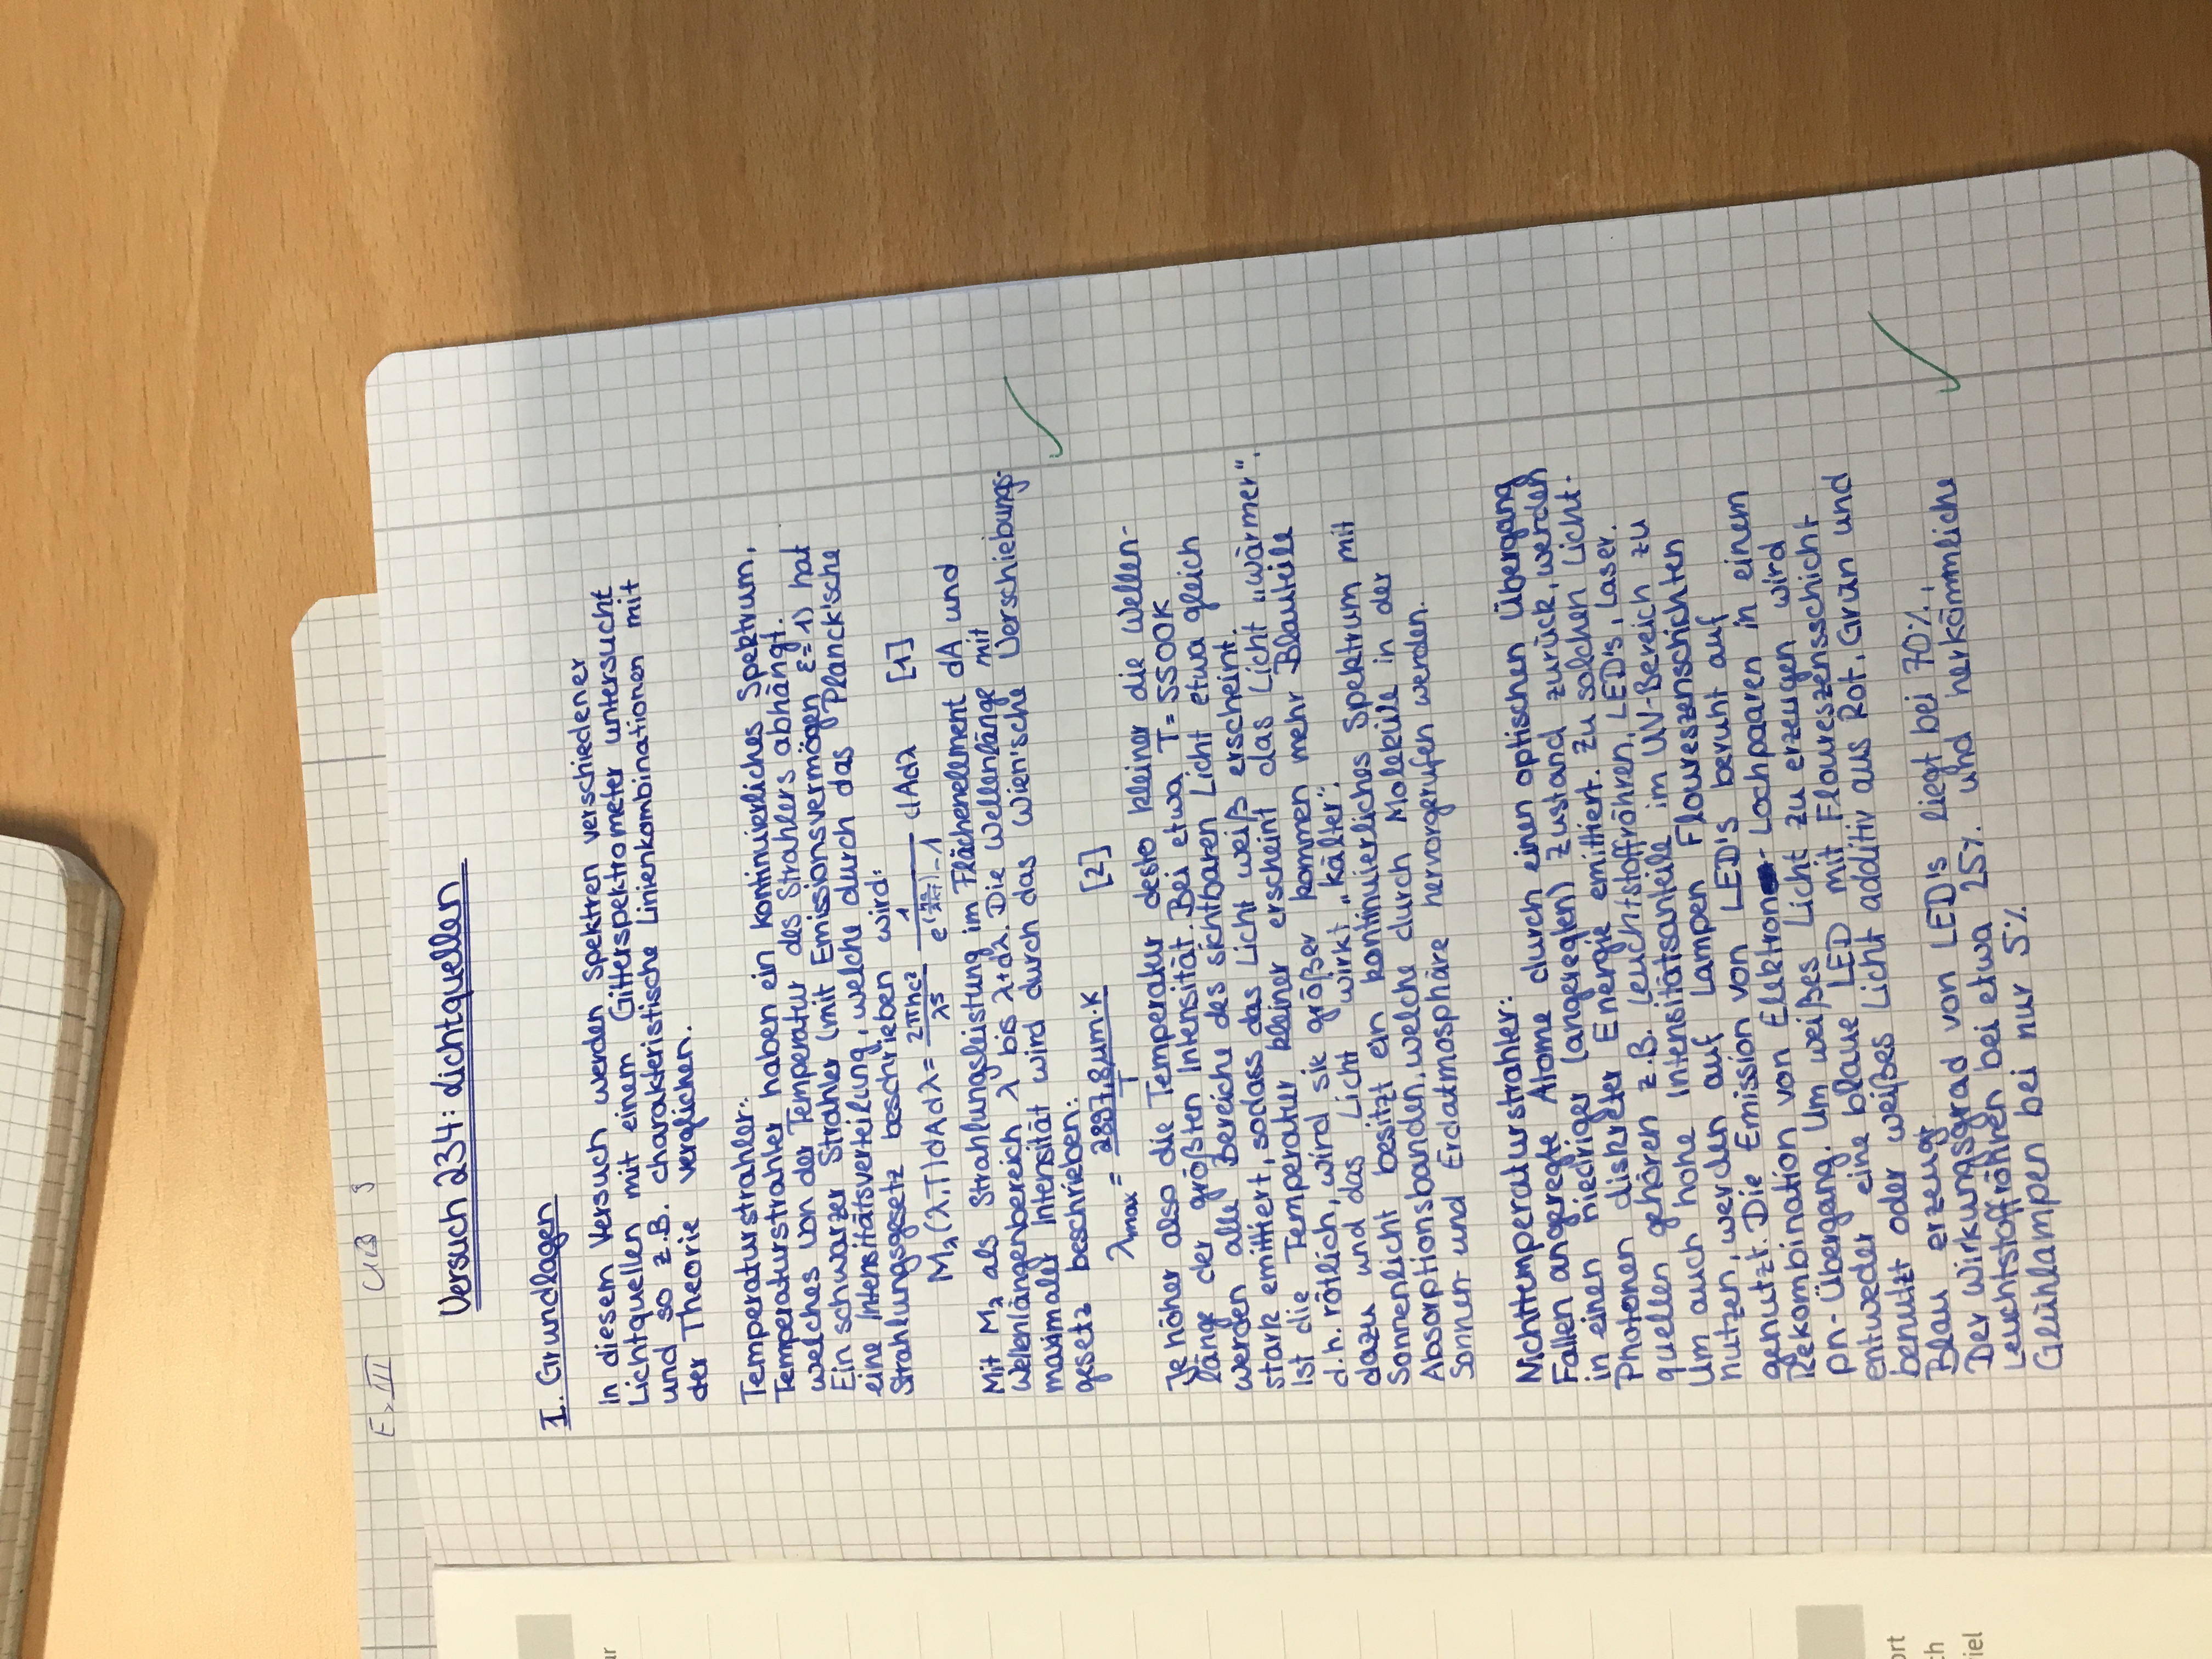 E>III UB 3
Versuch 234: Lichtquellen
I. Grundlagen
In diesem Versuch werden Spektren verschiedener
Lichtquellen mit einem Gitterspektrometer untersucht
und so z.B. charakteristische Linienkombinationen mit
der Theorie verglichen.
Temperaturstrahler:
Temperaturstrahler haben ein kontinuierliches Spektrum,
welches von der Temperatur des Strahlers abhängt.
Ein schwarzer Strahler (mit Emissionsvermögen ε=1) hat
eine Intensitätsverteilung, welche durch das Planck'sche
Strahlungsgesetz beschrieben wird:
M_λ(λ,T)dAdλ = 2πhc²/λ⁵ 1/(e^(hc/λkT)-1) dAdλ [1]
Mit M_λ als Strahlungsleistung im Flächenellment dA und
Wellenlängenbereich λ bis λ+dλ. Die Wellenlänge mit
maximaler Intensität wird durch das Wien'sche Verschiebungs-
gesetz beschrieben:
λmax = 2897,8µm·K/T [2]
Je höher also die Temperatur desto kleiner die Wellen-
länge der größten Intensität. Bei etwa T=5500K
werden alle Bereiche des sichtbaren Licht etwa gleich
stark emittiert, sodass das Licht weiß erscheint.
Ist die Temperatur kleiner erscheint das Licht „wärmer",
d.h. rötlich, wird sie größer kommen mehr Blauteile
dazu und das Licht wirkt „kälter".
Sonnenlicht besitzt ein kontinuierliches Spektrum mit
Absorptionsbanden, welche durch Moleküle in der
Sonnen- und Erdatmosphäre hervorgerufen werden.
Nichttemperaturstrahler:
Fallen angeregte Atome durch einen optischen Übergang
in einen niedriger (angeregten) Zustand zurück, werden
Photonen diskreter Energie emittiert. Zu solchen Licht-
quellen gehören z.B. Leuchtstoffröhren, LED's, Laser.
Um auch hohe Intensitätsanteile im UV-Bereich zu
nutzen, werden auf Lampen Floureszenschichten
genutzt. Die Emission von LED's beruht auf
Rekombination von Elektron-Lochpaaren in einem
pn-Übergang. Um weißes Licht zu erzeugen wird
entweder eine blaue LED mit Floureszensschicht
benutzt oder weißes Licht additiv aus Rot, Grün und
Blau erzeugt.
Der Wirkungsgrad von LED's liegt bei 70%,
Leuchtstoffröhren bei etwa 25% und herkömmliche
Glühlampen bei nur 5%
ur
ort
ch
viel